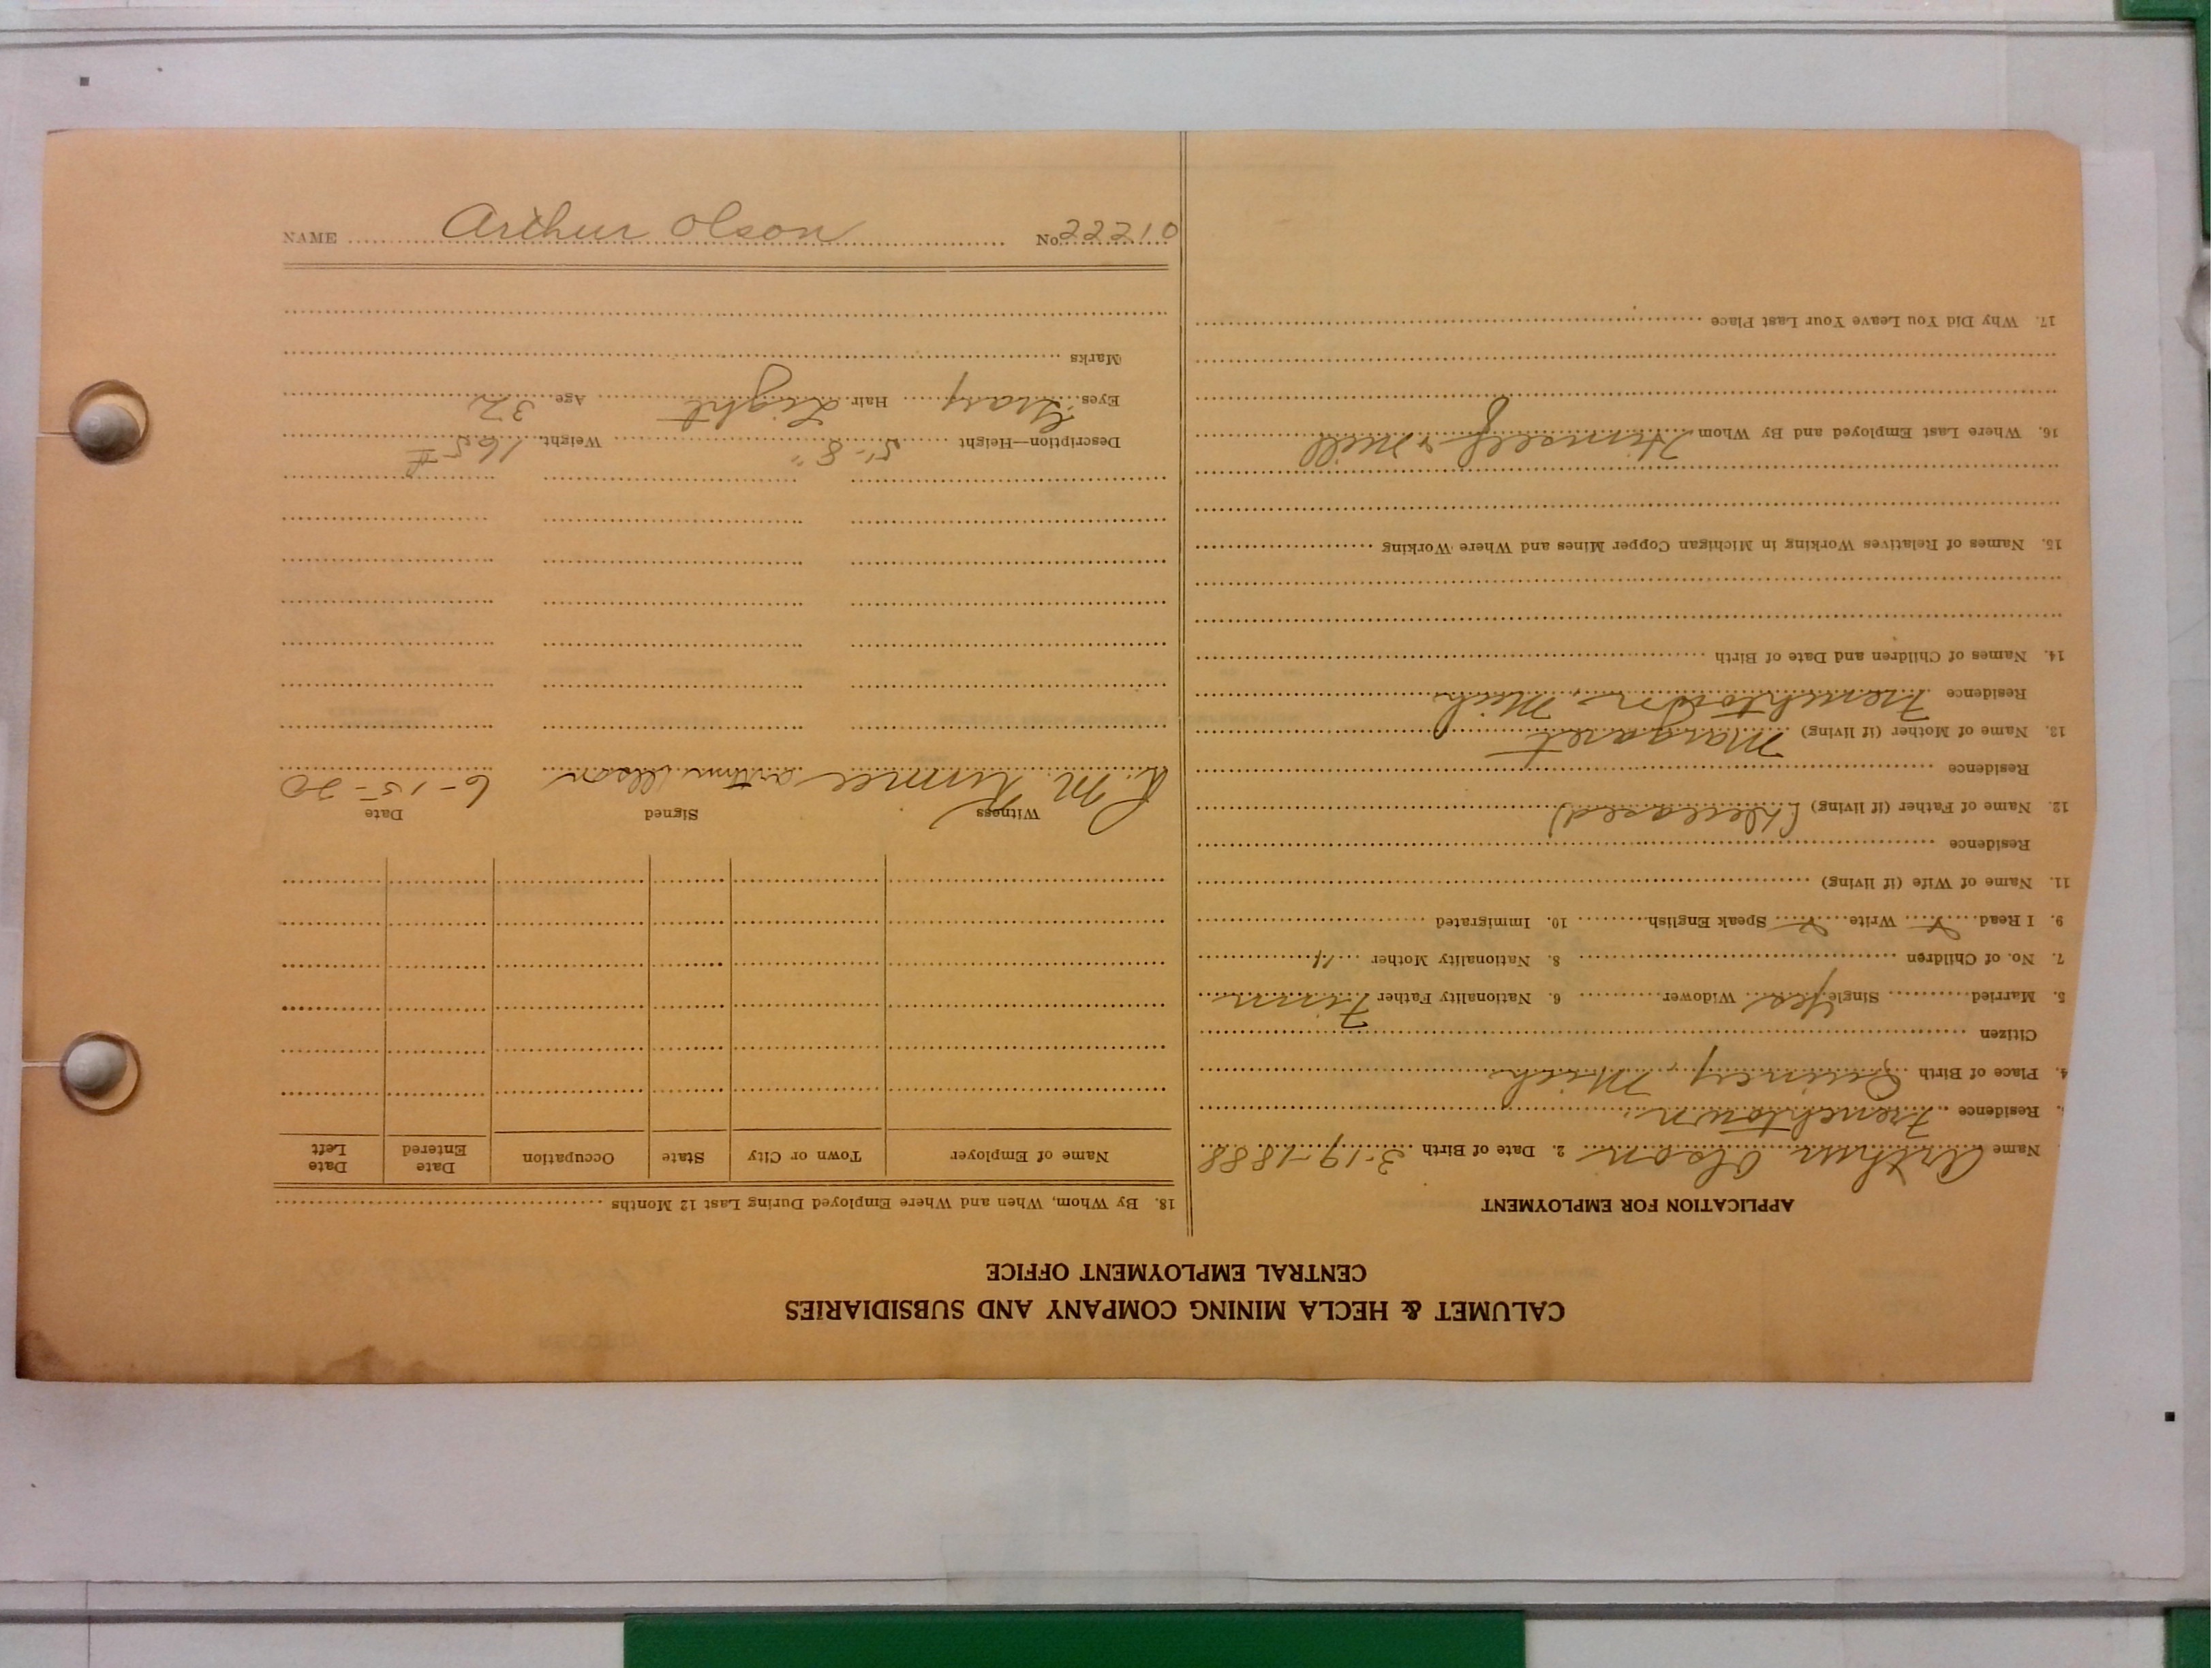 CALUMET & HECLA MINING COMPANY AND SUBSIDIARIES
CENTRAL EMPLOYMENT OFFICE
APPLICATION FOR EMPLOYMENT
Name Arthur Olson 2. Date of Birth 3-19-1888
Residence Frenchtown
4. Place of Birth Quincy, Mich
Citizen
5. Married Single Yes Widower 6. Nationality Father Finn
7. No. of Children 8. Nationality Mother "
9. I Read Write Speak English 10. Immigrated
11. Name of Wife (if living)
Residence
12. Name of Father (if living) (Deceased)
Residence
13. Name of Mother (if living) Margaret
Residence Frenchtown, Mich
14. Names of Children and Date of Birth
15. Names of Relatives Working in Michigan Copper Mines and Where Working
16. Where Last Employed and By Whom Himself & Mill
17. Why Did You Leave Your Last Place
18. By Whom, When and Where Employed During Last 12 Months
Name of Employer Town or City State Occupation Date Entered Date Left
Witness Signed Date
M. Arthur Olson 6-15-20
Description—Height 5'-8" Weight 165 #
Eyes Gray Hair Light Age 32
Marks
NAME Arthur Olson No. 22210